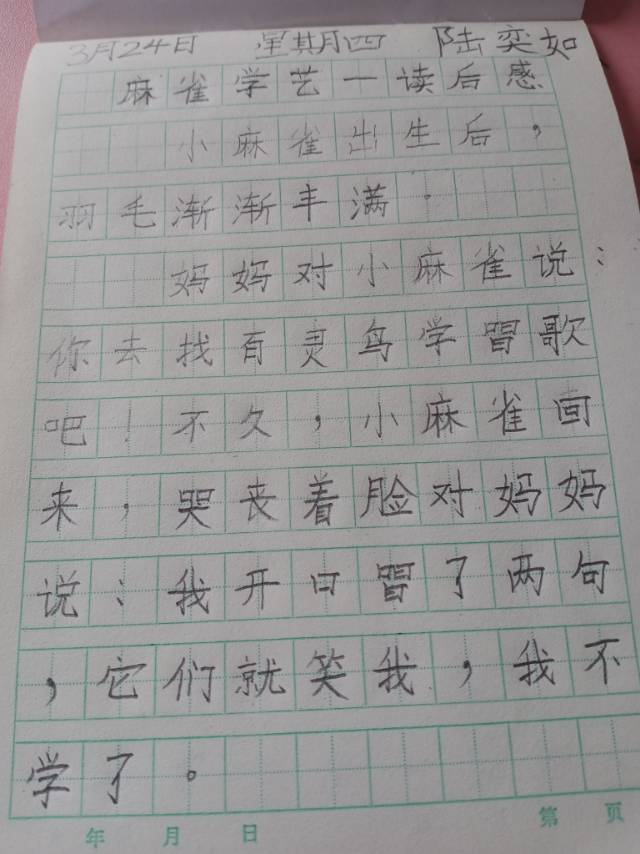 3月24日 星期四 陆奕如
麻雀学艺一读后感
小麻雀出生后，
羽毛渐渐丰满．
妈妈对小麻雀说：
你去找百灵鸟学習歌
吧！不久，小麻雀回
来，哭丧着脸对妈妈
说：我开口習了两句
，它们就笑我，我不
学了。
年 月 日 第 页